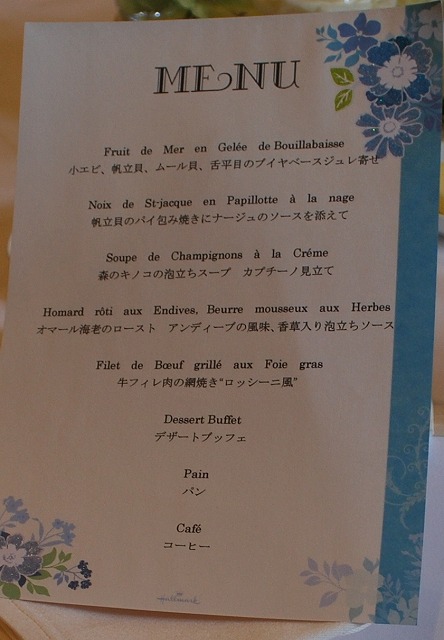 MENU
Fruit de Mer en Gelée de Bouillabaisse
小エビ、帆立貝、ムール貝、舌平目のブイヤベースジュレ寄せ
Noix de St-jacque en Papillotte à la nage
帆立貝のパイ包み焼きにナージュのソースを添えて
Soupe de Champignons à la Créme
森のキノコの泡立ちスープ カプチーノ見立て
Homard rôti aux Endives, Beurre mousseux aux Herbes
オマール海老のロースト アンディーブの風味、香草入り泡立ちソース
Filet de Bœuf grillé aux Foie gras
牛フィレ肉の網焼き“ロッシーニ風”
Dessert Buffet
デザートブッフェ
Pain
パン
Café
コーヒー
Hallmark